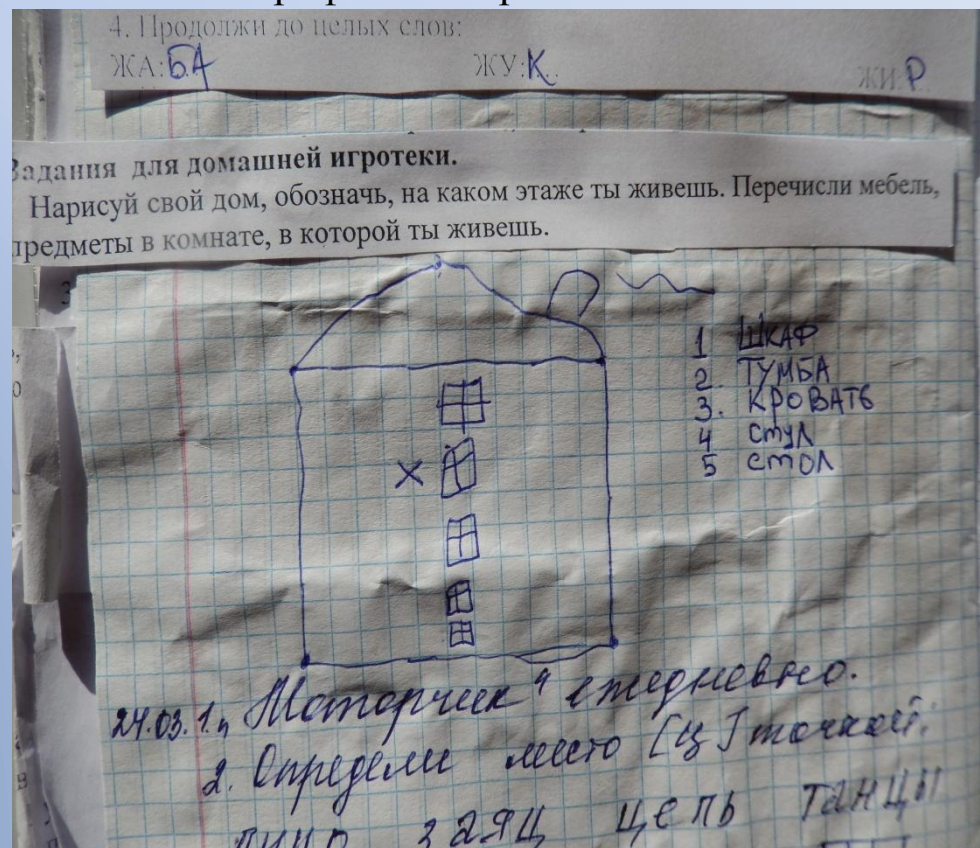 4. Продолжи до целых слов:
ЖА: БА ЖУ: К.. ЖИ: Р
Задания для домашней игротеки.
Нарисуй свой дом, обозначь, на каком этаже ты живешь. Перечисли мебель,
предметы в комнате, в которой ты живешь.
1 ШКАФ
2. ТУМБА
3. КРОВАТЬ
4 СТУЛ
5 СТОЛ
24.03. 1. „Моторчик" ежедневно.
2. Определи место [ц] точкой:
заяц цепь танцы